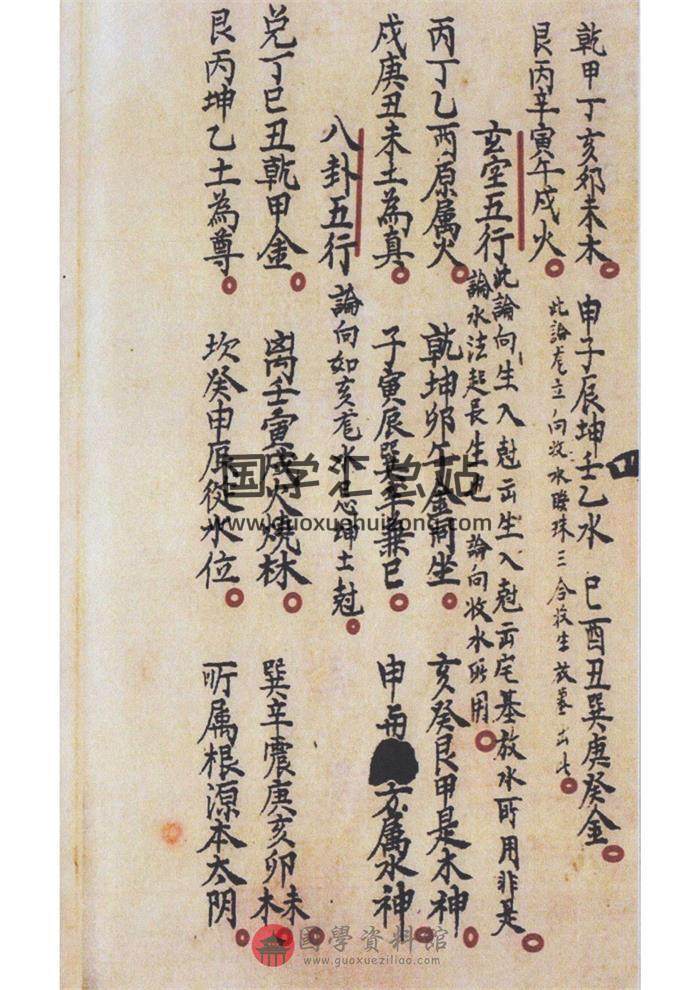 乾甲丁亥卯未木 申子辰坤壬乙水 巳酉丑巽庚癸金
艮丙辛寅午戌火 此論龙立向收水 珠三合收生放墓
玄空五行 此論向生入尅出生入尅出宅基放水所用非是
論水法起長生也 論向收水所用
丙丁乙酉原属火 乾坤卯午金同坐 亥癸艮甲是木神
戌庚丑未土為真 子寅辰巽辛兼巳 申與 方属水神
八卦五行 論向如亥龙水忌坤土尅
兑丁巳丑乹甲金 离壬寅戌火燒林 巽辛震庚亥卯未木
艮丙坤乙土為尊 坎癸申辰從水位 所属根源本太阴
四
国学汇总站
www.guoxuehuizong.com
國學資料館
www.guoxueziliao.com